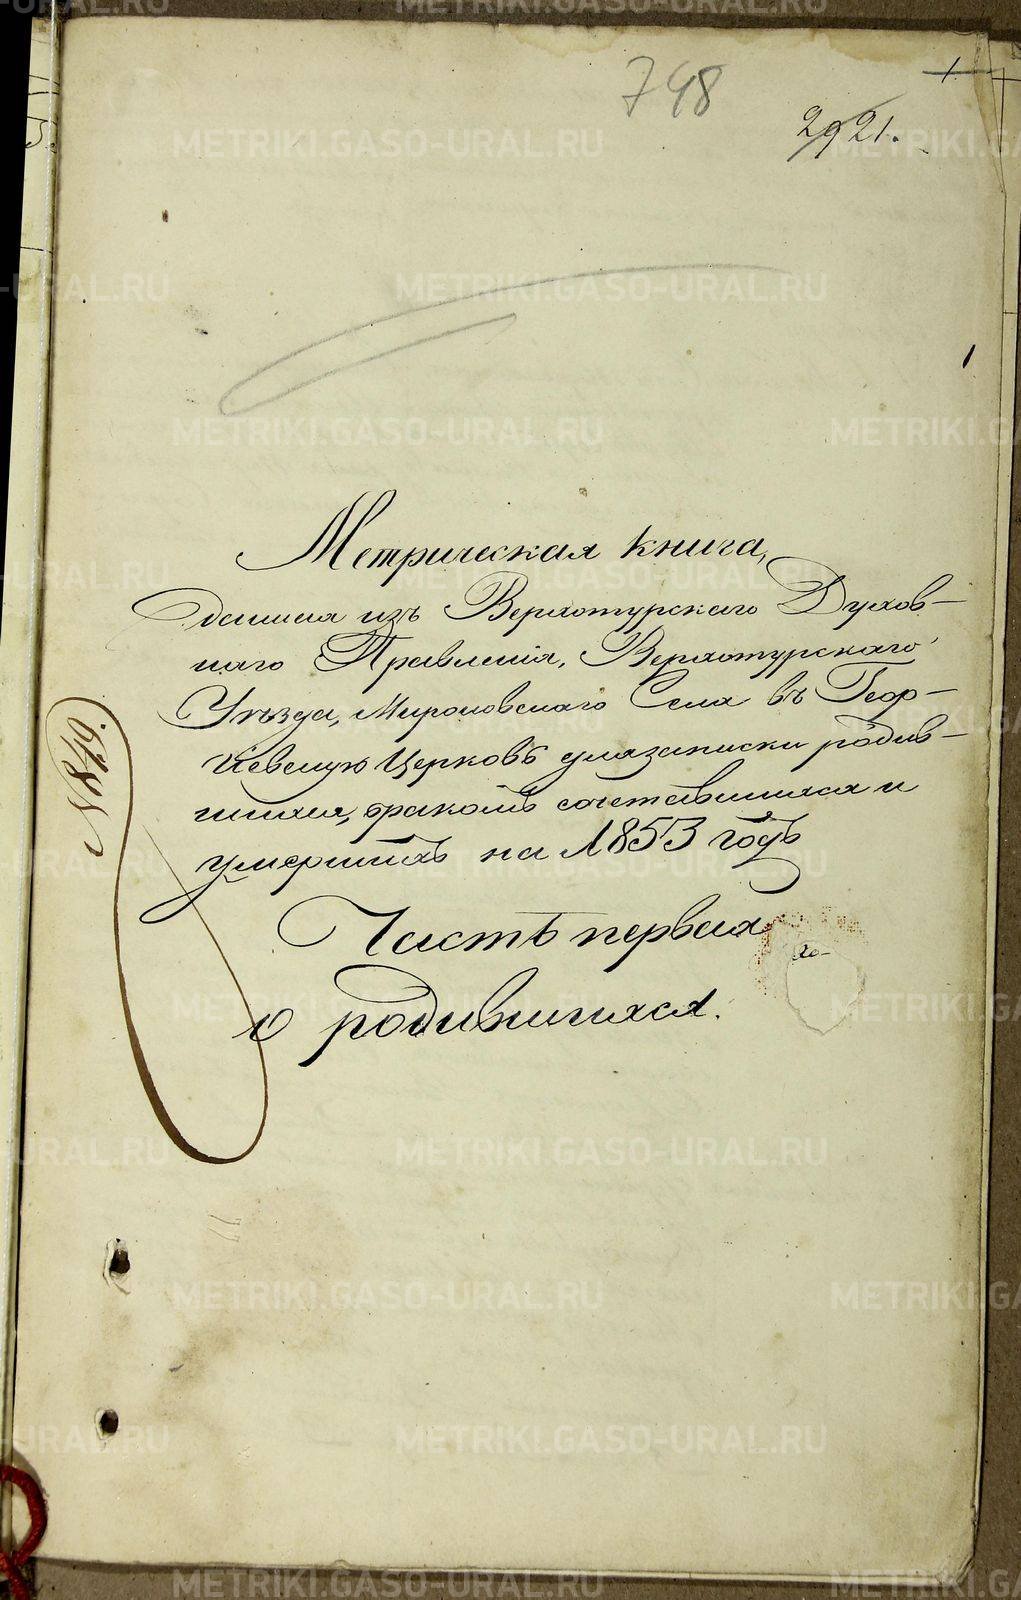 1.
748
2921.
1
Метрическая книга,
данная изъ Верхотурскаго Духов-
наго Правленія, Верхотурскаго
Уѣзда, Мироновскаго Села въ Геор-
гіевскую Церковь для записки родив-
шихся, бракомъ сочетавшихся и
умершихъ на 1853 годъ
№ 849.
Часть первая
о родившихся.
METRIKI.GASO-URAL.RU